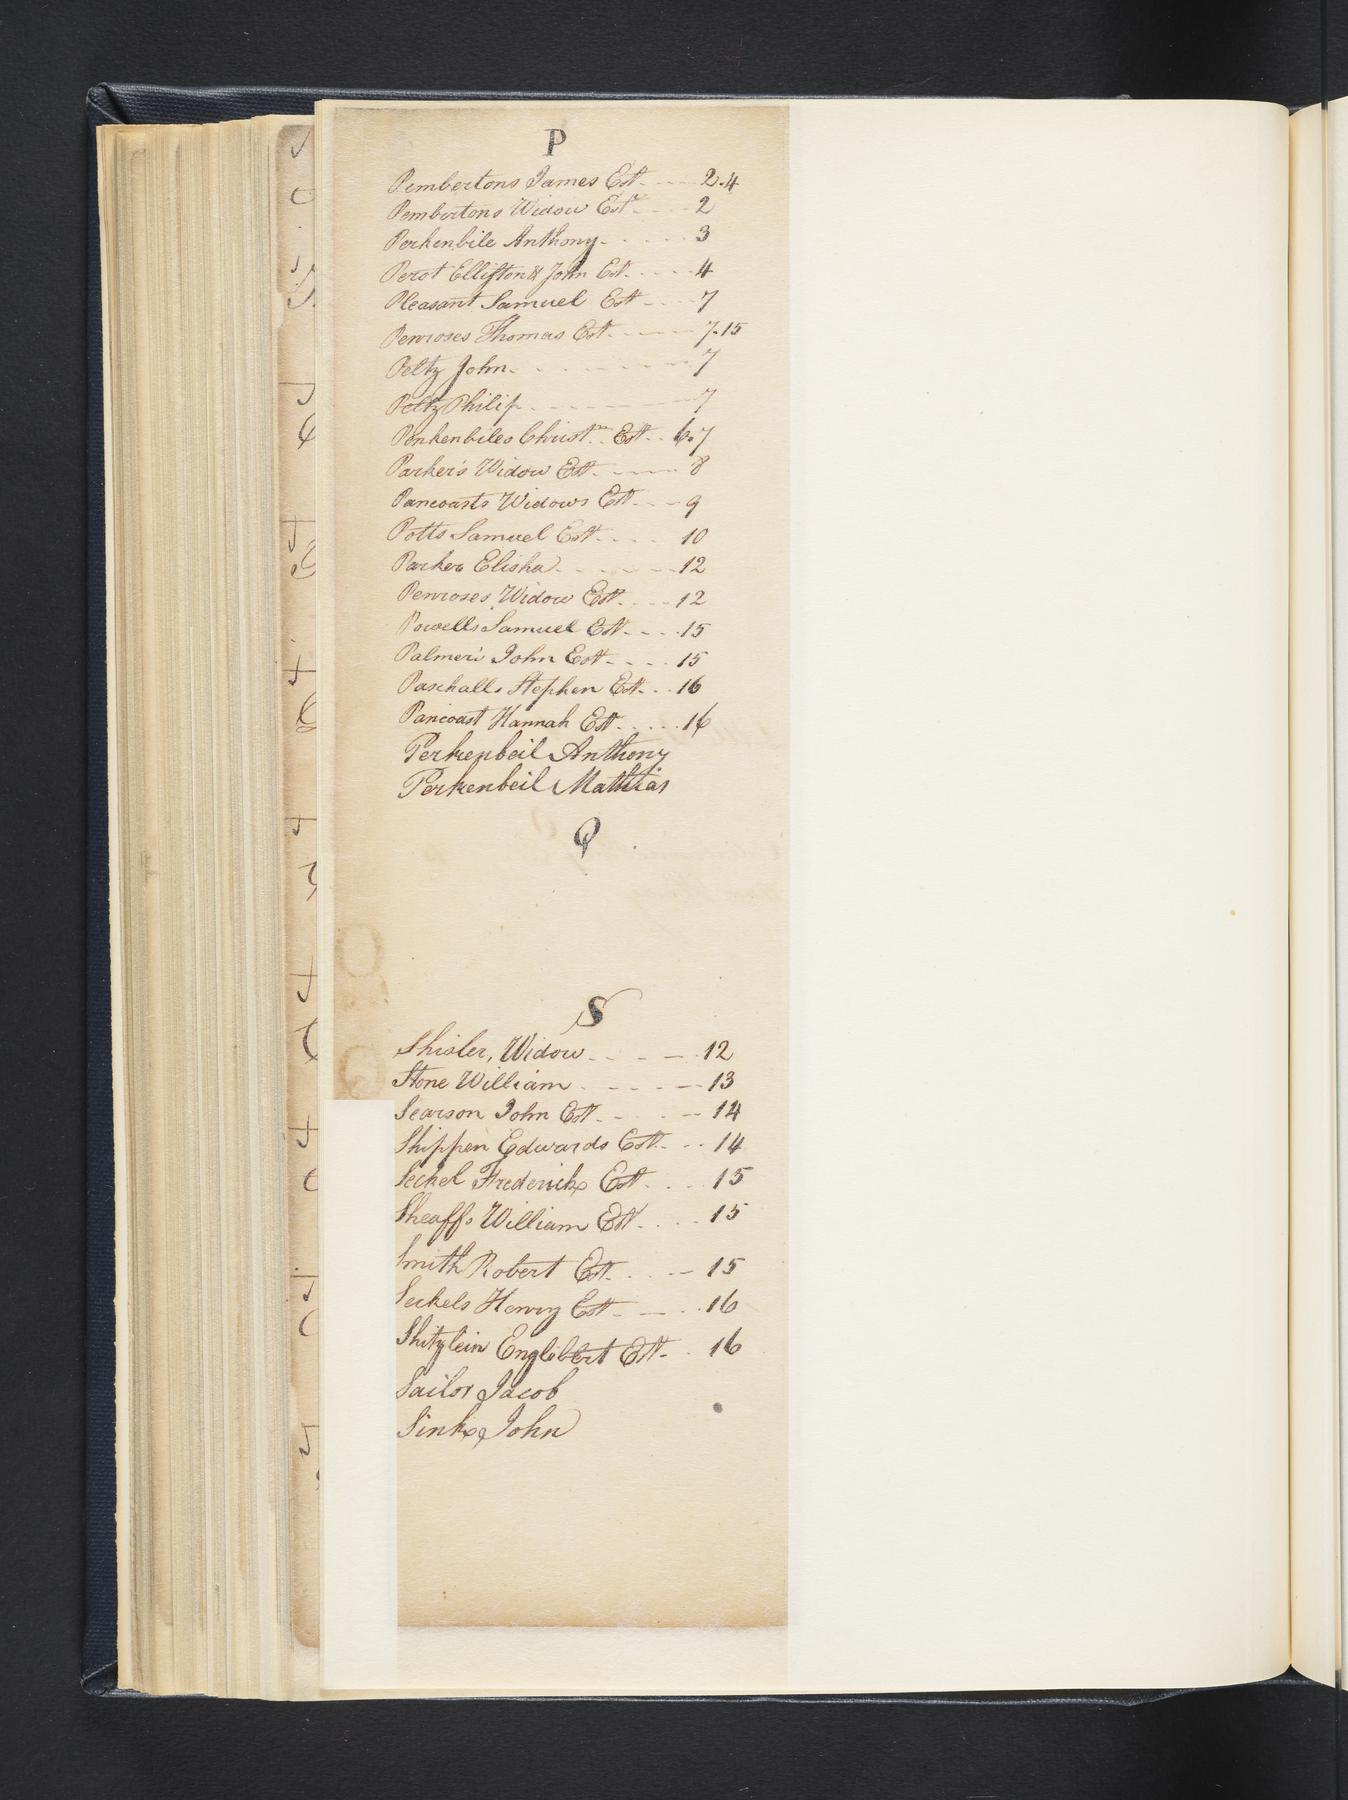 P
Pembertons James Estt - - - 2.4
Pembertons Widow Estt - - - 2
Perkenbile Anthony - - - - 3
Perot Elliston & John Est. - - - 4
Pleasant Samuel Estt - - - 7
Penroses Thomas Est. - - - 7.15
Peltz John - - - - 7
Peltz Philip - - - - 7
Penkenbiles Christn. Estt. . 6.7
Parker's Widow Estt. - - - 8
Pancoasts Widows Estt. - - - 9
Potts Samuel Estt. - - - 10
Parker Elisha - - - - 12
Penroses Widow Estt. - - - 12
Powells Samuel Estt. - - - 15
Palmer's John Estt. - - - 15
Paschalls Stephen Estt. . . 16
Pancoast Hannah Estt. - - - 16
Perkenbeil Anthony
Perkenbeil Mathias
Q
S
Shisler, Widow - - - - 12
Stone William - - - - 13
Searson John Estt. - - - 14
Shippen Edwards Estt. - - 14
Seckel Fredericks Estt. - - - 15
Sheaffs William Estt. - - - 15
Smith Robert Estt. - - - 15
Seckels Henry Estt. - - - 16
Shitzlein Englebert Estt. - 16
Sailor Jacob
Sinks John